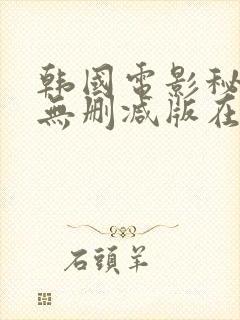 韩國電影秘
無删减版在
石頭羊